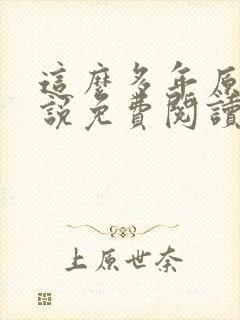 這麼多年原
說免費閱讀
上原世奈